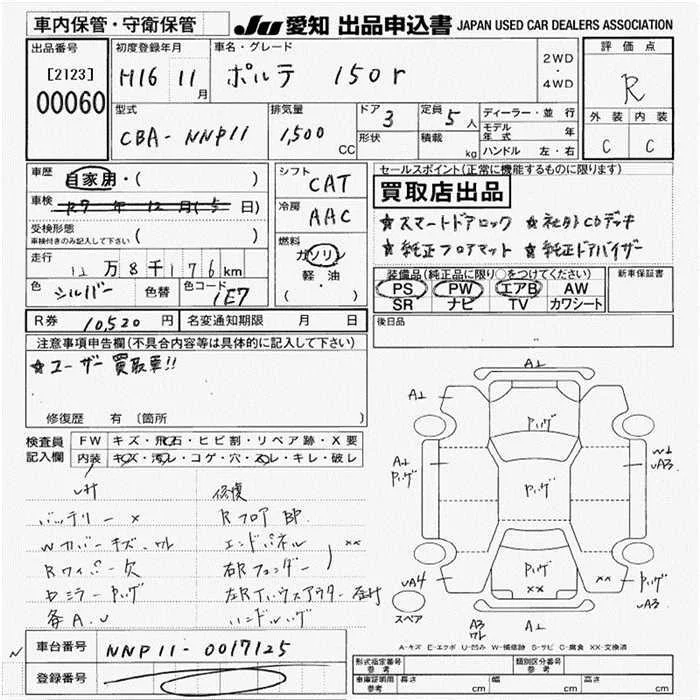 車内保管・守衛保管
JU 愛知 出品申込書 JAPAN USED CAR DEALERS ASSOCIATION
出品番号
[2123]
00060
初度登録年月
H16 11月
車名・グレード
ポルテ 150r
2WD
・
4WD
評価点
R
外装 内装
C C
型式
CBA-NNP11
排気量
1,500
CC
ドア 3
形状
定員 5 人
積載 kg
ディーラー・並行
モデル年式 年
ハンドル 左・右
車歴
自家用・( )
車検
R7年12月(5日)
受検形態
車検付きのみ記入して下さい ( )
走行
11万8千176km
色 シルバー 色替 色コード 1E7
シフト
CAT
冷房
AAC
燃料
ガソリン
軽・油
( )
セールスポイント(正常に機能するものに限ります)
買取店出品
☆スマートドアロック ☆社外CDデッキ
☆純正フロアマット ☆純正ドアバイザー
装備品(純正品に限り○をつけてください)
PS PW エアB AW
SR ナビ TV カワシート
新車保証書
後日品
R券 10,520円 名変通知期限 月 日
注意事項申告欄(不具合内容等は具体的に記入して下さい)
☆ユーザー買取車!!
修復歴 有 〔箇所
検査員
記入欄
FW キズ・飛石・ヒビ割・リペア跡・X要
内装 キズ・汚レ・コゲ・穴・スレ・キレ・破レ
バッテリー ×
Wカバーキズ・ワレ
Rワイパー欠
各A.U
修復
RフロアBP
エンドパネル
右Rフェンダー
××
ハンドルハゲ
A1
A1
A1
Pハゲ
Pハゲ
Pハゲ
Pハゲ
××
W1
UA3
UA4
××
Pハゲ
UA3
A3
ワレ
A1
スペア
A-キズ E-エクボ U-凹み W-補修跡 S-サビ C-腐食 XX-交換済
車台番号 NNP11-0017125
登録番号
形式指定番号
参考
類別区分番号
参考
車庫証明用
参考
長さ cm 幅 cm 高さ cm